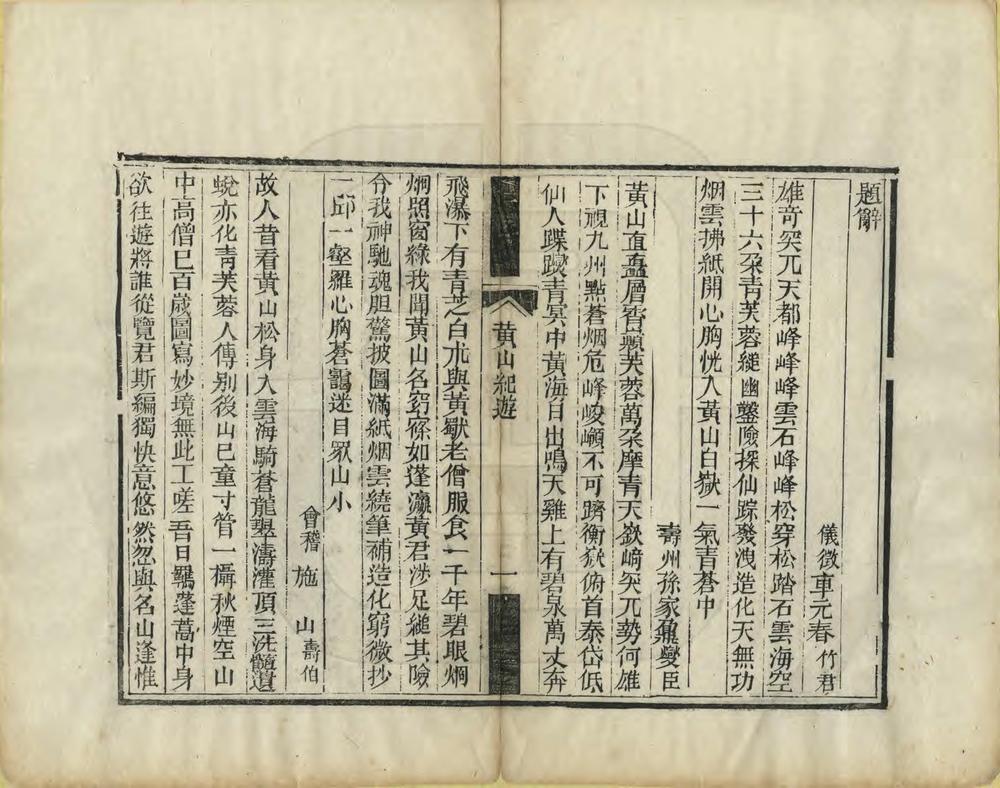 題辭
儀徵車元春竹君
雄竒突兀天都峰峰峰雲石峰峰松穿松踏石雲海空
三十六朵青芙蓉縋幽鑿險探仙踪發洩造化天無功
烟雲拂紙開心胸恍入黃山白嶽一氣青蒼中
壽州孫家鼐燮臣
黃山直矗層霄巔芙蓉萬朵摩青天嶔崎突兀勢何雄
下視九州點蒼烟危峰峻嶺不可躋衡嶽俯首泰岱低
仙人蹀躞青冥中黃海日出鳴天雞上有碧泉萬丈奔
黃山紀遊
一
飛瀑下有青芝白朮與黃獻老僧服食一千年碧眼烱
烱照窗綠我聞黃山名窈窱如蓬瀛黃君涉足縋其險
令我神馳魂胆驚披圖滿紙烟雲繞筆補造化窮微抄
一邱一壑羅心胸蒼靄迷目眾山小
會稽施山壽伯
故人昔看黃山松身入雲海騎蒼龍翠濤灌頂三洗髓遺
蛻亦化青芙蓉人傳別後山已童寸管一攝秋煙空山
中高僧已百歲圖寫妙境無此工嗟吾日羈蓬蒿中身
欲往遊將誰從覽君斯編獨快意悠然忽與名山逢惟